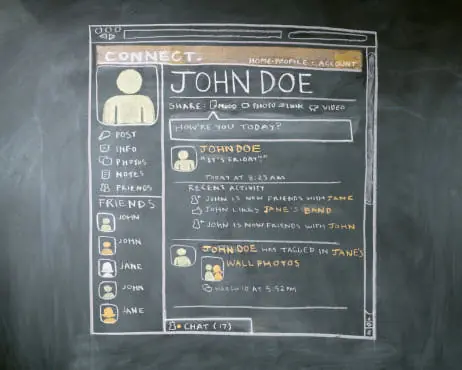 CONNECT.
HOME PROFILE ACCOUNT
JOHN DOE
SHARE: MOOD PHOTO LINK VIDEO
HOW'RE YOU TODAY?
POST
INFO
PHOTOS
NOTES
FRIENDS
FRIENDS
JOHN
JOHN
JANE
JOHN
JANE
JOHN DOE
"IT'S FRIDAY"
TODAY AT 8:23 AM
RECENT ACTIVITY
JOHN IS NEW FRIENDS WITH JANE
JOHN LIKES JANE'S BAND
JOHN IS NOW FRIENDS WITH JOHN
JOHN DOE WAS TAGGED IN JANE'S
WALL PHOTOS
MARCH 10 AT 5:52PM
CHAT (17)